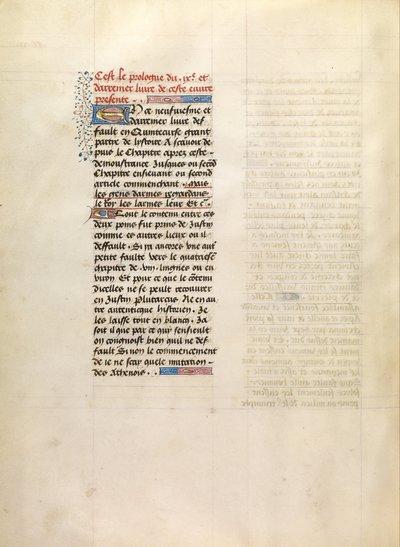 Cest le prologue du .ixe. et
darrenier livre de ceste euvre
presente ..
En ce neufuiesme et
darrenier livre def
fault en Quintecurse grant
partie de lystoire A scavoir de
puis le Chapitre apres ceste
demoustrance Jusques ou second
Chapitre ensieuant ou second
article commenchant. Mais
les gens darmes regardans
le roy les larmes leur Et ca.
Tout le contenu entre ces
deux poins fut prins de Justin
comme es autres lieux ou il
deffault. Si ya ancores une aut
petite faulte vers le quatriesme
chapitre de .viii. lingnes ou en
viron Et pour ce que le contenu
dicelles ne se peult recouvrer
en Justin plutarcus Ne en au
tre autentique historien. Je
les laisse tout en blancq. Ja
soit il que par ce qui sensieult
on congnoist bien quil ne def
fault Sinon le commencement
de ie ne scay quele mutation
des Athenois ..